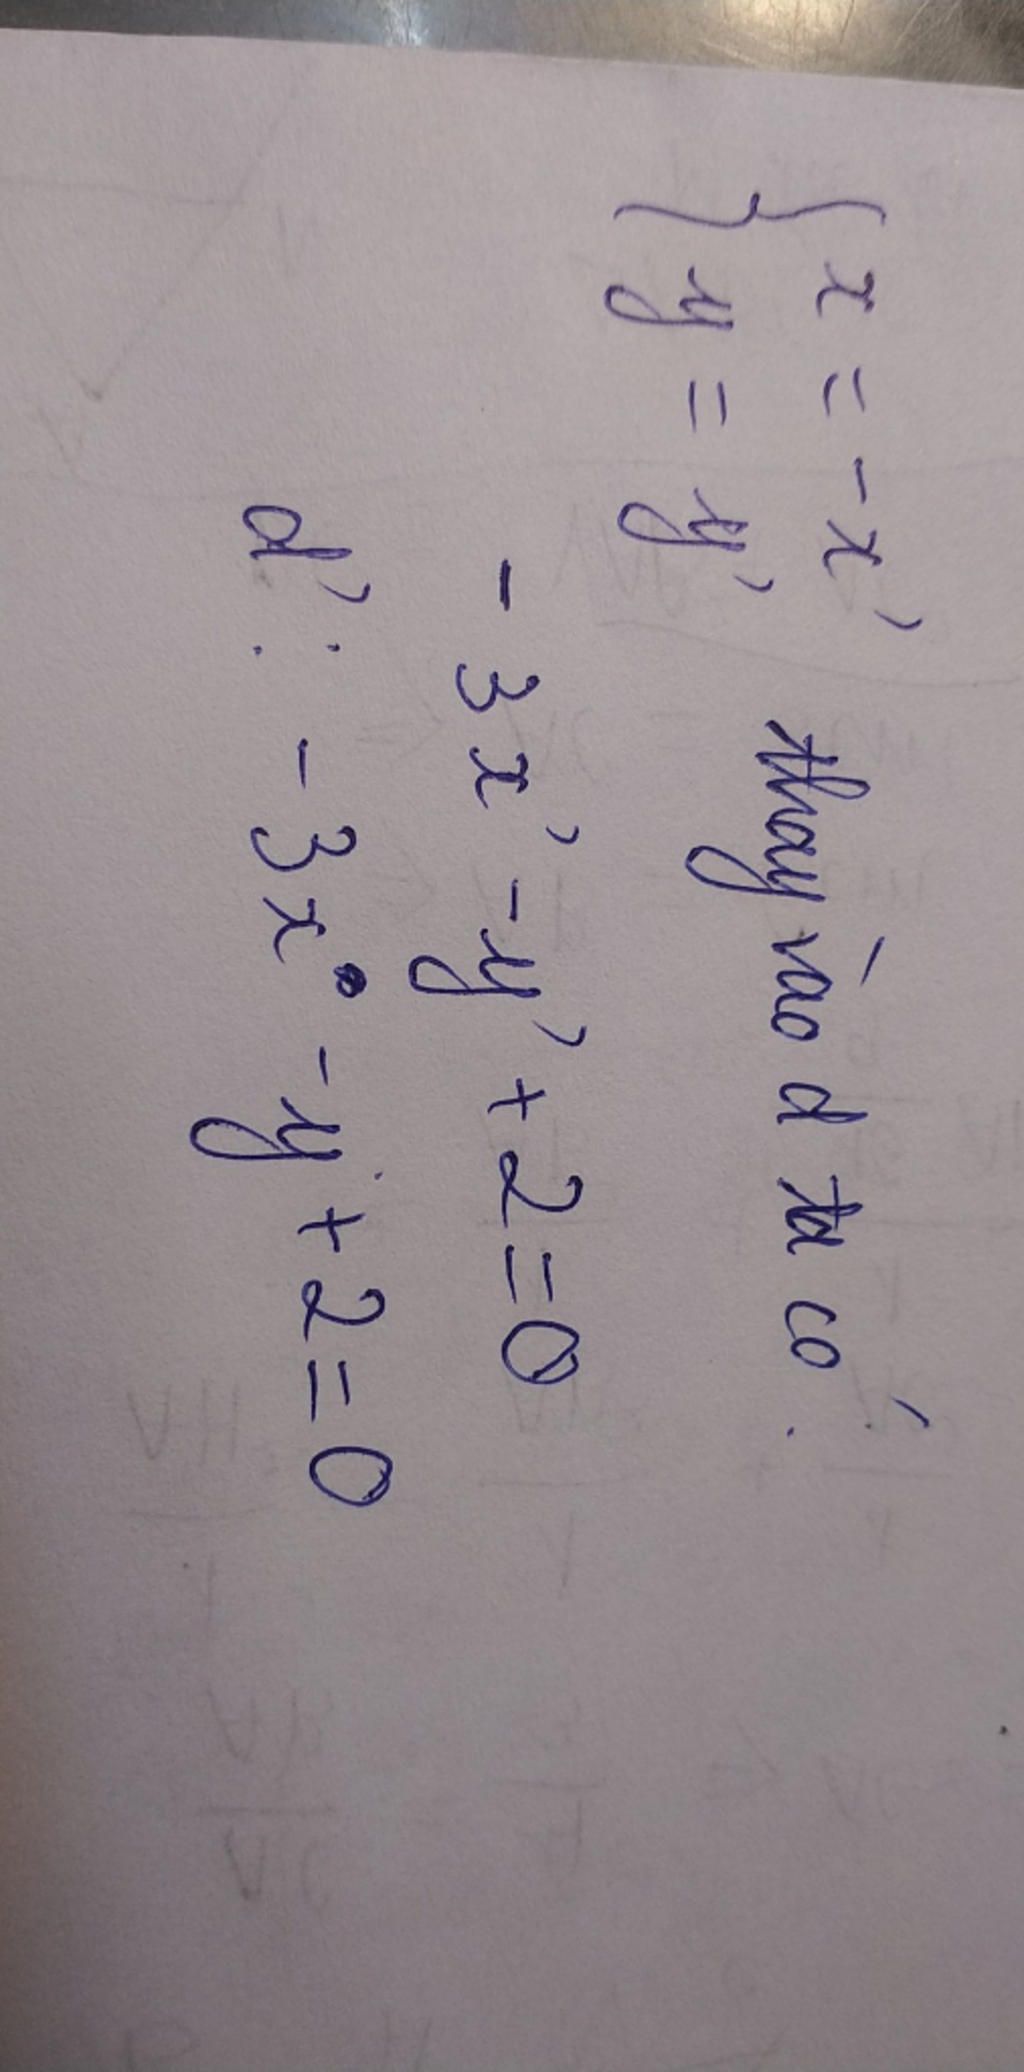 { x = -x'
y = y' thay vào d ta có.
- 3x' - y' + 2 = 0
d': - 3x - y + 2 = 0